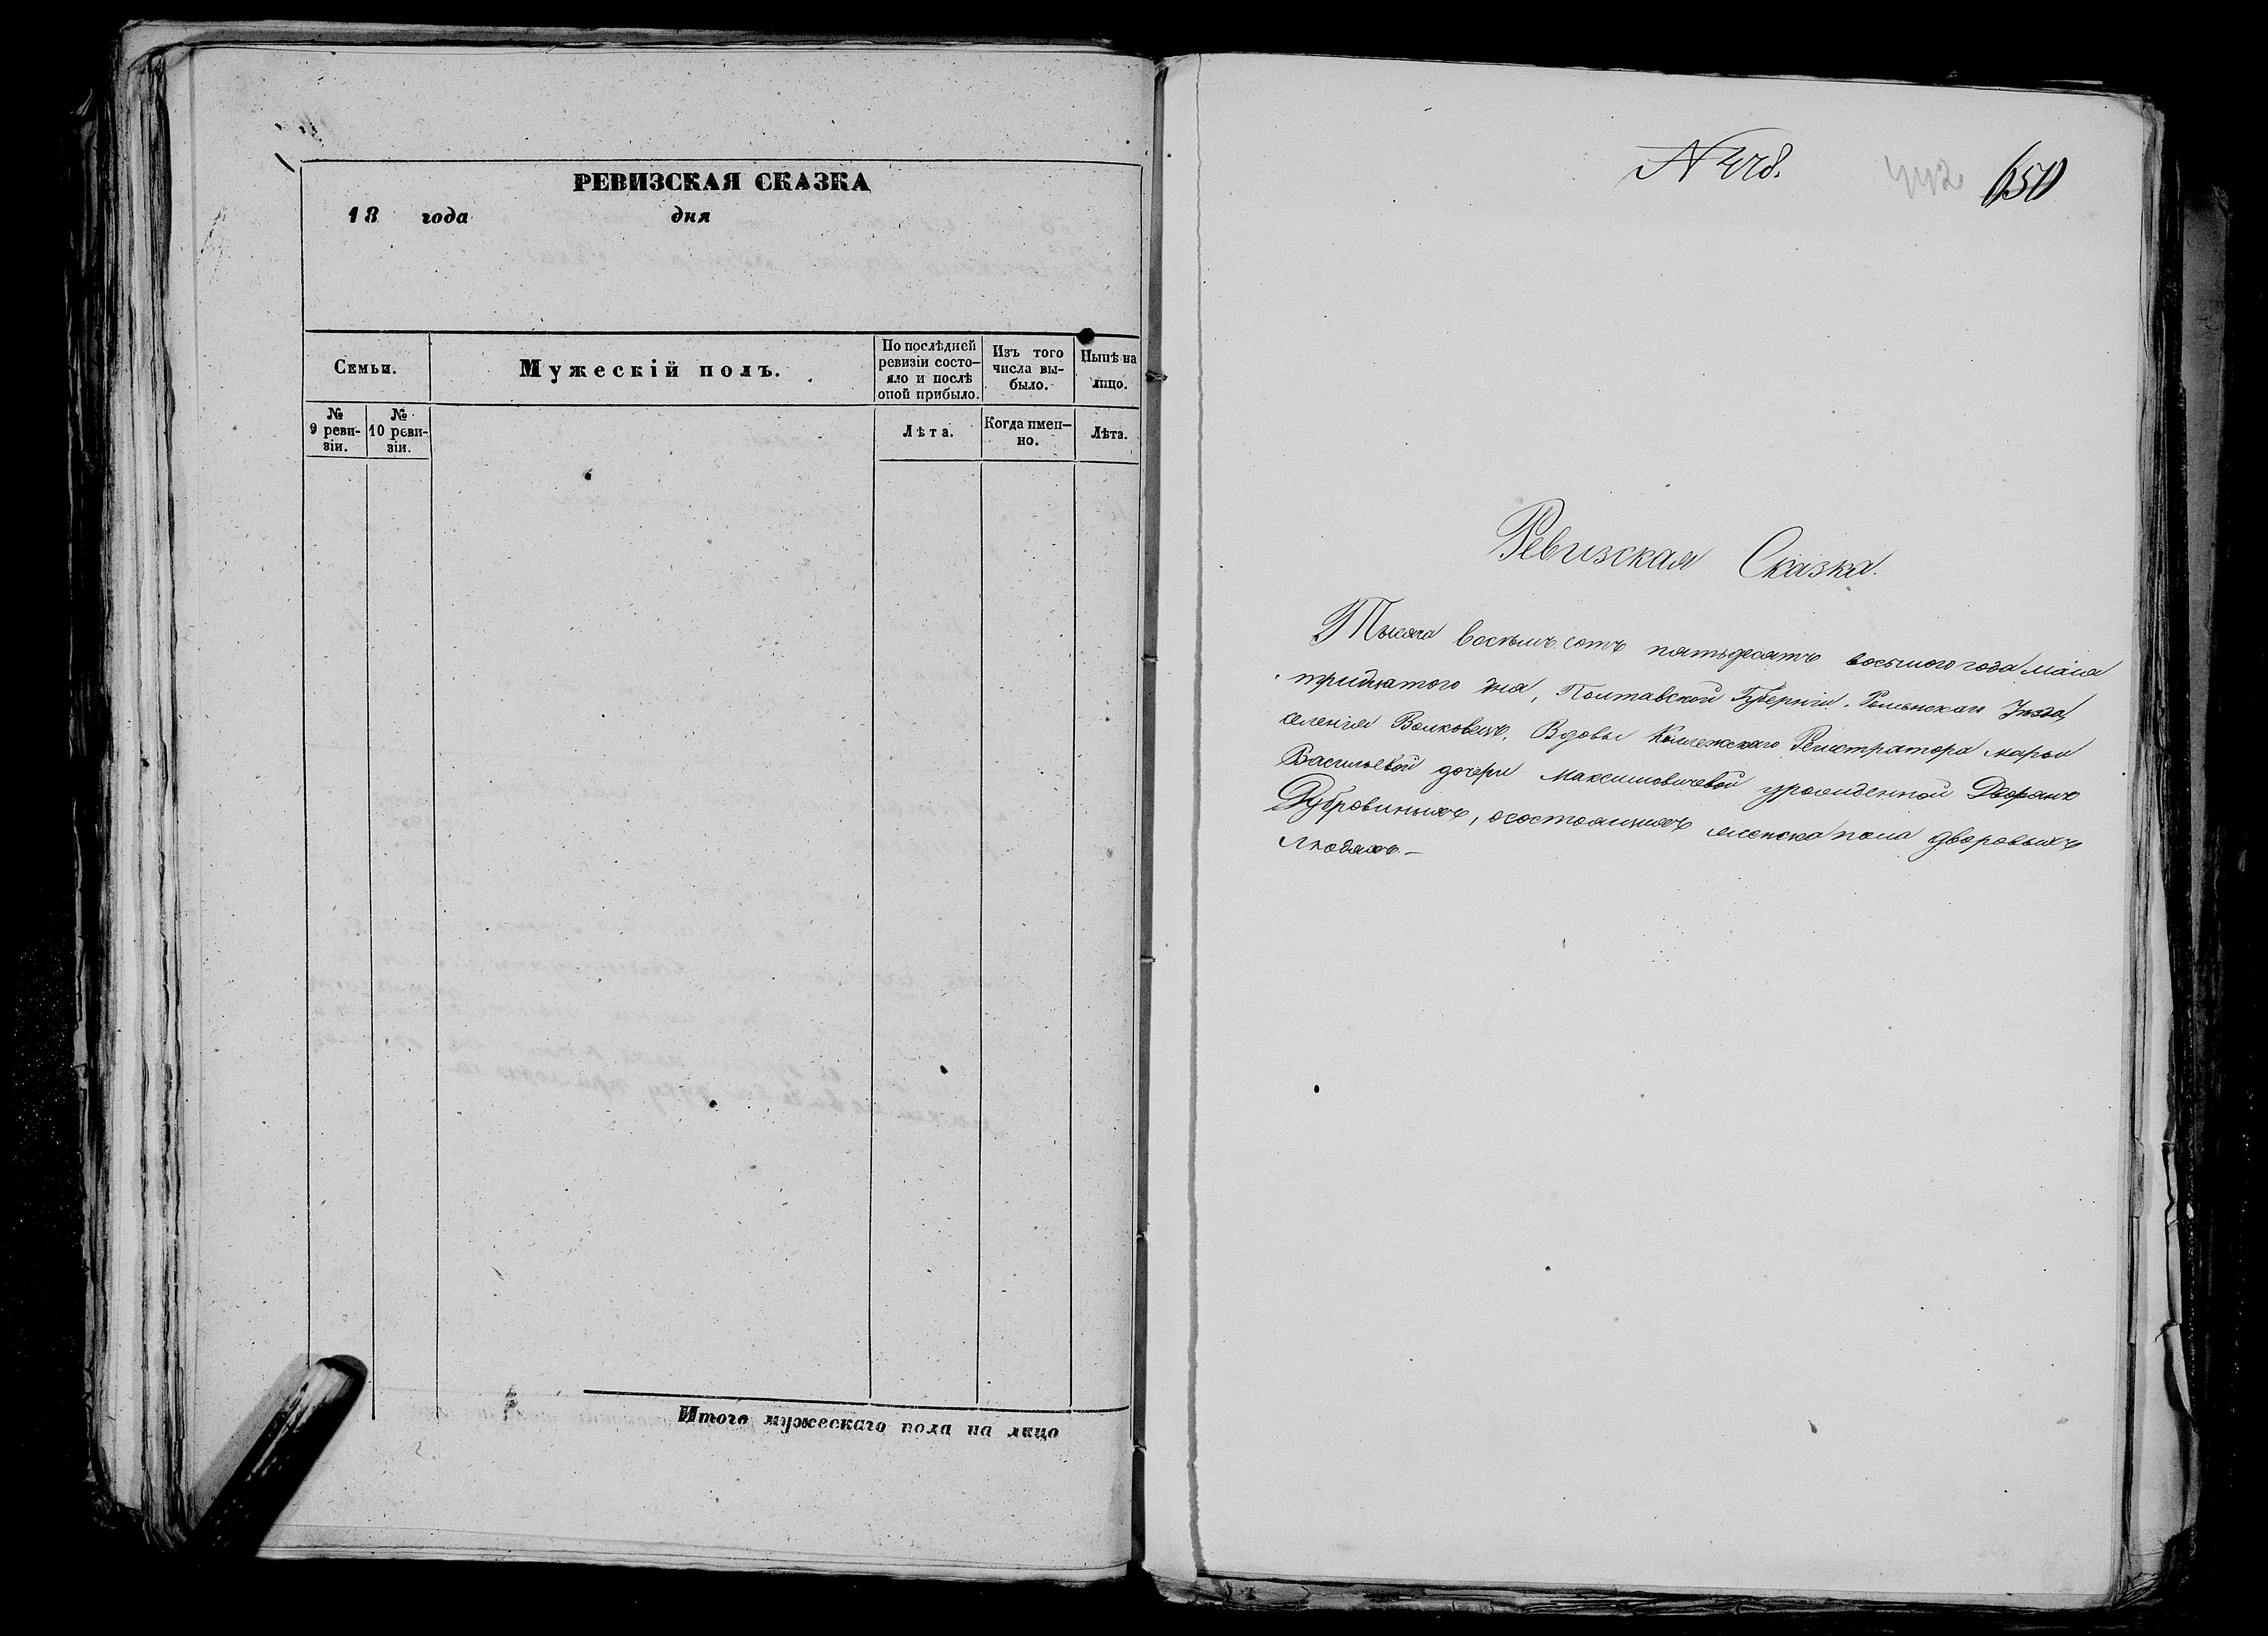 РЕВИЗСКАЯ СКАЗКА
18 года дня
Семьи.
Мужескій полъ.
По послѣдней ревизіи состо-
яло и послѣ
оной прибыло.
Изъ того
числа вы-
было.
Нынѣ на
лицо.
№
9 реви-
зіи.
№
10 реви-
зіи.
Лѣта.
Когда имен-
но.
Лѣта.
Итого мужескаго пола на лицо
N 448.
442
650
Ревизская Сказка.
Тысяча восѣмъ сотъ пятьдесятъ восьмого года маія
тридцатого дня, Полтавской Губерніи. Роменскаго Уѣзда,
селенія Волковецъ, Вдовы Коллежскаго Регистратора марьи
Васильевой дочери Максимовичевой урожденной Дворянъ
Дубровиныхъ, осостоящихъ женска пола дворовыхъ
Людяхъ.—